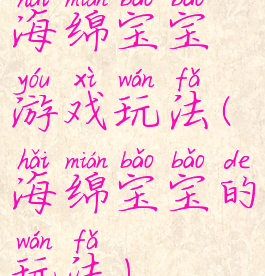 hǎi mián bǎo bǎo
海绵宝宝
yóu xì wán fǎ
游戏玩法(
hǎi mián bǎo bǎo de
海绵宝宝的
wán fǎ
玩法)